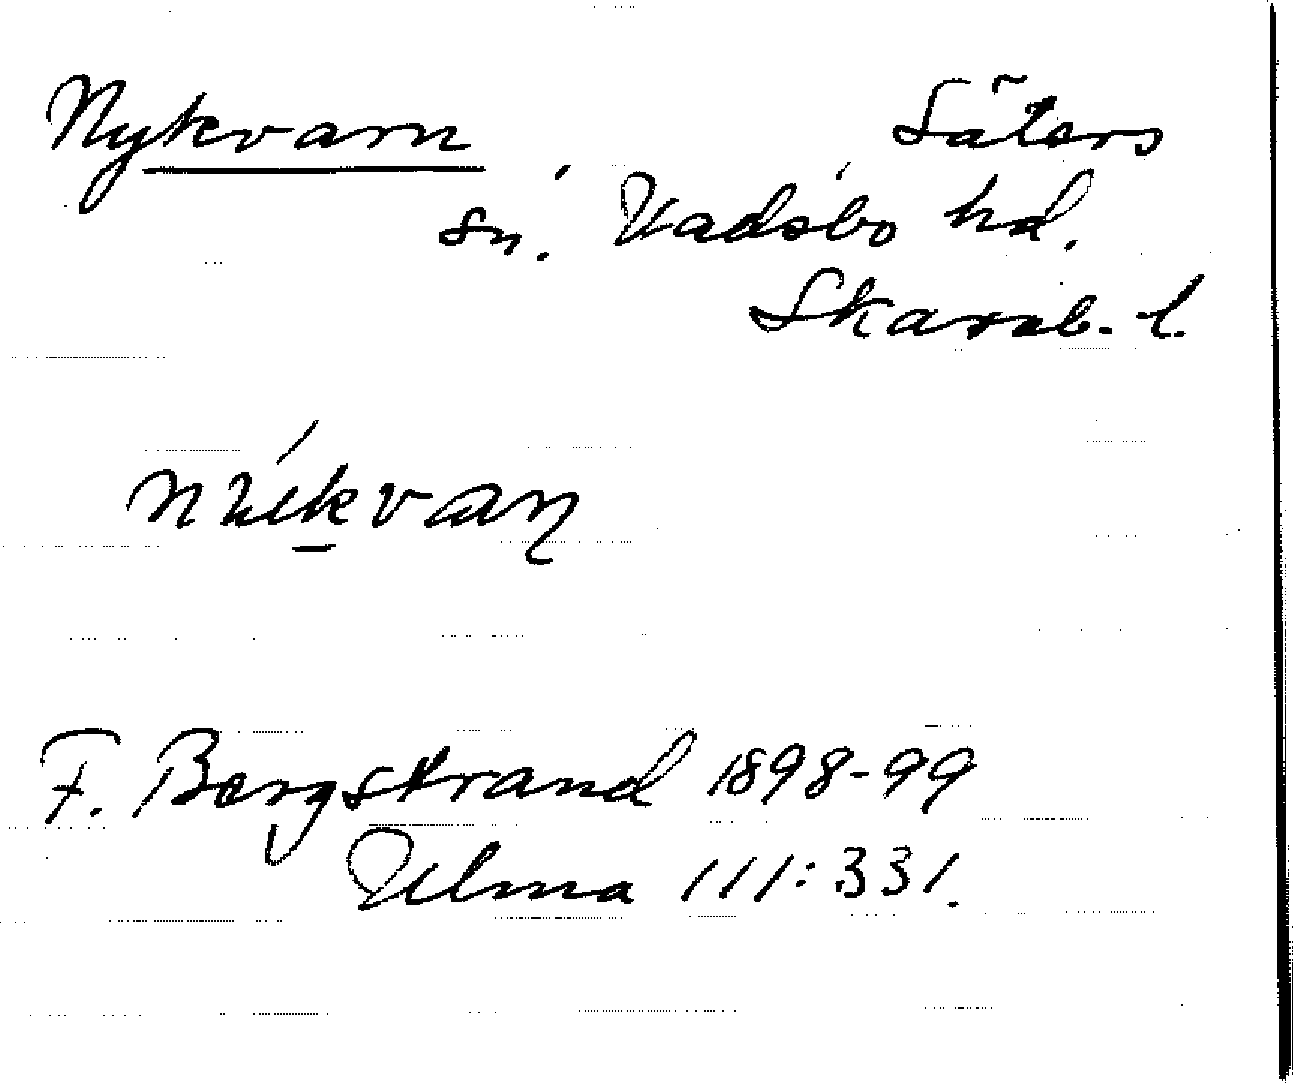 Nykvarn Säters
sn. Vadsbo hd.
Skarab. l.
F. Bergstrand 1898-99
Ulma 111:331.